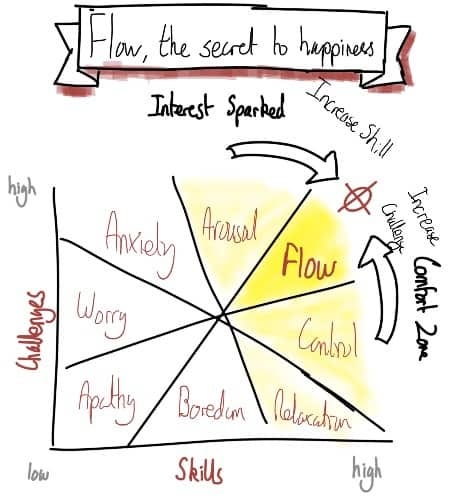 Flow, the secret to happiness
Interest Sparked
Increase Skill
high
Anxiety
Arousal
Flow
Increase
Challenge
Comfort Zone
Challenges
Worry
Control
Apathy
Boredom
Relaxation
low
Skills
high